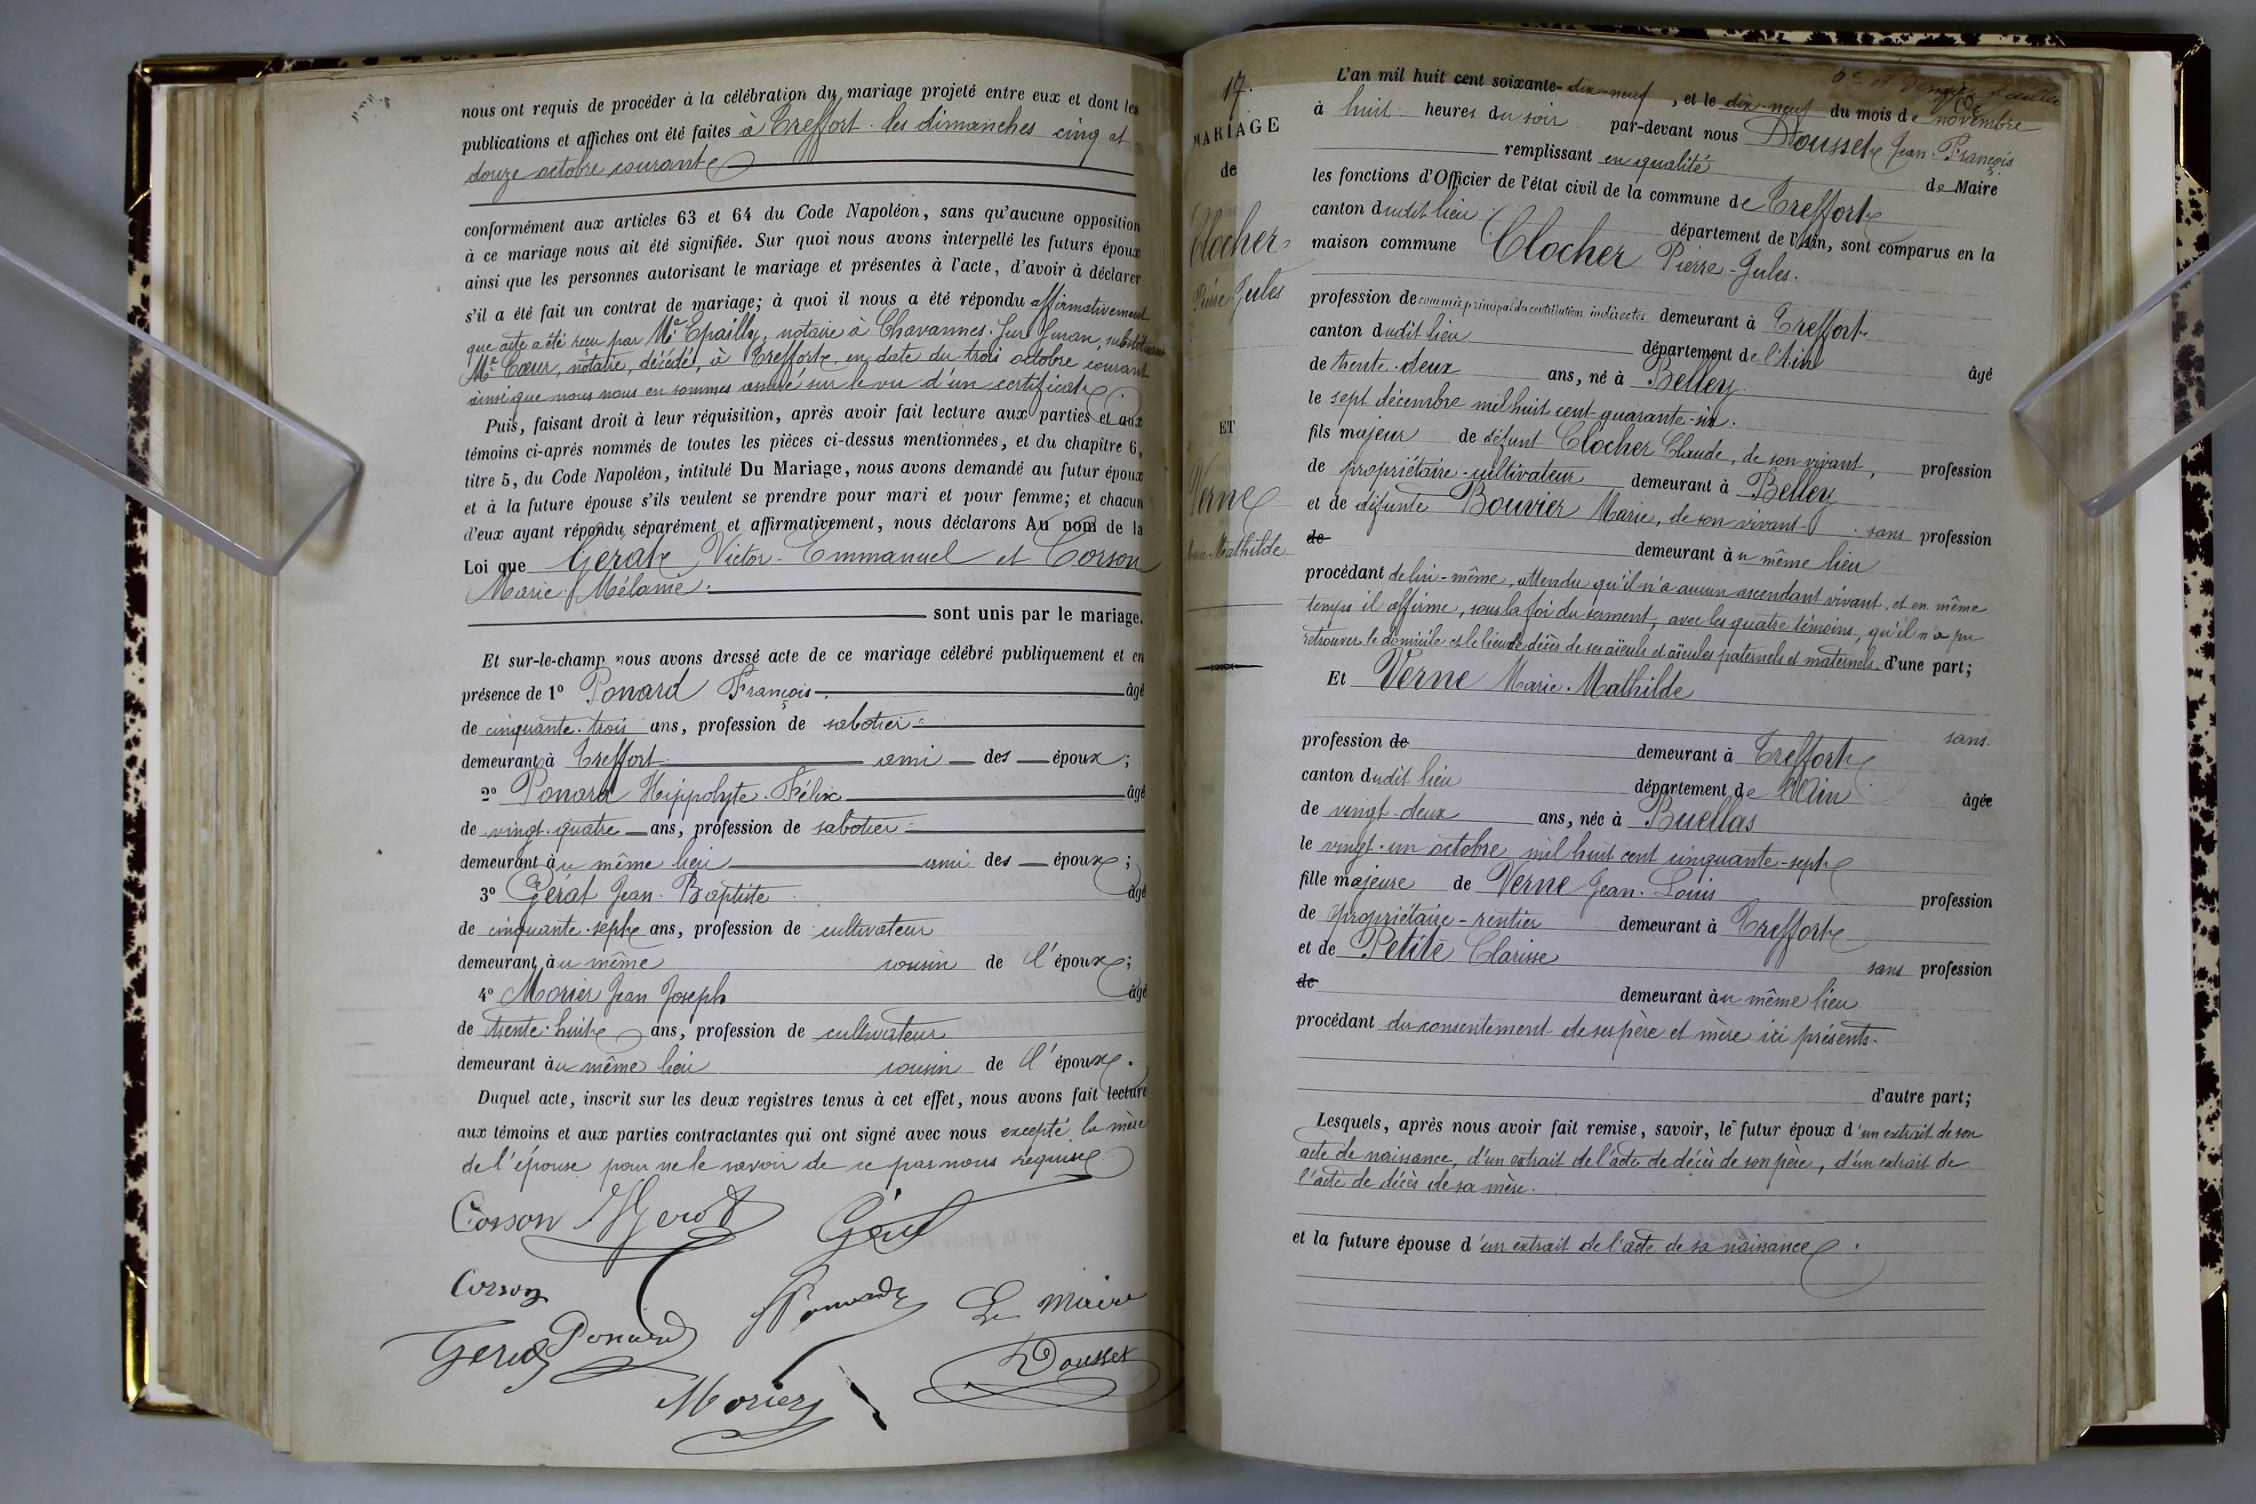 nous ont requis de procéder à la célébration du mariage projeté entre eux et dont les
publications et affiches ont été faites à Treffort les dimanches cinq et
douze octobre courant
conformément aux articles 63 et 64 du Code Napoléon, sans qu'aucune opposition
à ce mariage nous ait été signifiée. Sur quoi nous avons interpellé les futurs époux
ainsi que les personnes autorisant le mariage et présentes à l'acte, d'avoir à déclarer
s'il a été fait un contrat de mariage; à quoi il nous a été répondu affirmativement
que acte a été reçu par Me Epailly, notaire à Chavannes-sur-Suran, substituant
Me Cœur, notaire, décédé, à Treffort, en date du trois octobre courant
ainsi que nous nous en sommes assuré sur le vu d'un certificat.
Puis, faisant droit à leur réquisition, après avoir fait lecture aux parties et aux
témoins ci-après nommés de toutes les pièces ci-dessus mentionnées, et du chapitre 6,
titre 5, du Code Napoléon, intitulé Du Mariage, nous avons demandé au futur époux
et à la future épouse s'ils veulent se prendre pour mari et pour femme; et chacun
d'eux ayant répondu séparément et affirmativement, nous déclarons Au nom de la
Loi que Gérat Victor-Emmanuel et Corson
Marie Mélanie.
sont unis par le mariage.
Et sur-le-champ nous avons dressé acte de ce mariage célébré publiquement et en
présence de 1° Ponard François. âgé
de cinquante-trois ans, profession de sabotier
demeurant à Treffort ami des époux;
2° Ponard Hippolyte-Félix âgé
de vingt-quatre ans, profession de sabotier
demeurant au même lieu ami des époux;
3° Gérat Jean-Baptiste âgé
de cinquante-sept ans, profession de cultivateur
demeurant au même cousin de l'époux;
4° Morier Jean Joseph âgé
de trente-huit ans, profession de cultivateur
demeurant au même lieu cousin de l'époux.
Duquel acte, inscrit sur les deux registres tenus à cet effet, nous avons fait lecture
aux témoins et aux parties contractantes qui ont signé avec nous excepté la mère
de l'épouse pour ne le savoir de ce par nous requise
Corson Gérat Gérat
Corson Ponard Le Maire
Gérat Ponard Dousset
Morier
17.
MARIAGE
de
Clocher
Pierre Jules
ET
Verne
Mathilde
L'an mil huit cent soixante-dix-neuf, et le dix-neuf du mois de novembre
à huit heures du soir par-devant nous Dousset Jean-François
remplissant en qualité de Maire
les fonctions d'Officier de l'état civil de la commune de Treffort
canton dudit lieu département de l'Ain, sont comparus en la
maison commune Clocher Pierre-Jules.
profession de commis principal des contributions indirectes demeurant à Treffort
canton dudit lieu département de l'Ain âgé
de trente-deux ans, né à Belley
le sept décembre mil huit cent quarante-six.
fils majeur de défunt Clocher Claude, de son vivant, profession
de propriétaire-cultivateur demeurant à Belley
et de défunte Bouvier Marie, de son vivant sans profession
de demeurant au même lieu
procédant de lui-même, attendu qu'il n'a aucun ascendant vivant, et en même
temps il affirme, sous la foi du serment, avec les quatre témoins, qu'il n'a pu
retrouver le domicile et le lieu de décès de ses aïeuls et aïeules paternels et maternels d'une part;
Et Verne Marie-Mathilde
sans
profession de demeurant à Treffort
canton dudit lieu département de l'Ain âgée
de vingt-deux ans, née à Buellas
le vingt-un octobre mil huit cent cinquante-sept
fille majeure de Verne Jean-Louis profession
de propriétaire-rentier demeurant à Treffort
et de Petite Clarisse sans profession
de demeurant au même lieu
procédant du consentement de ses père et mère ici présents.
d'autre part;
Lesquels, après nous avoir fait remise, savoir, le futur époux d'un extrait de son
acte de naissance, d'un extrait de l'acte de décès de son père, d'un extrait de
l'acte de décès de sa mère.
et la future épouse d'un extrait de l'acte de sa naissance.